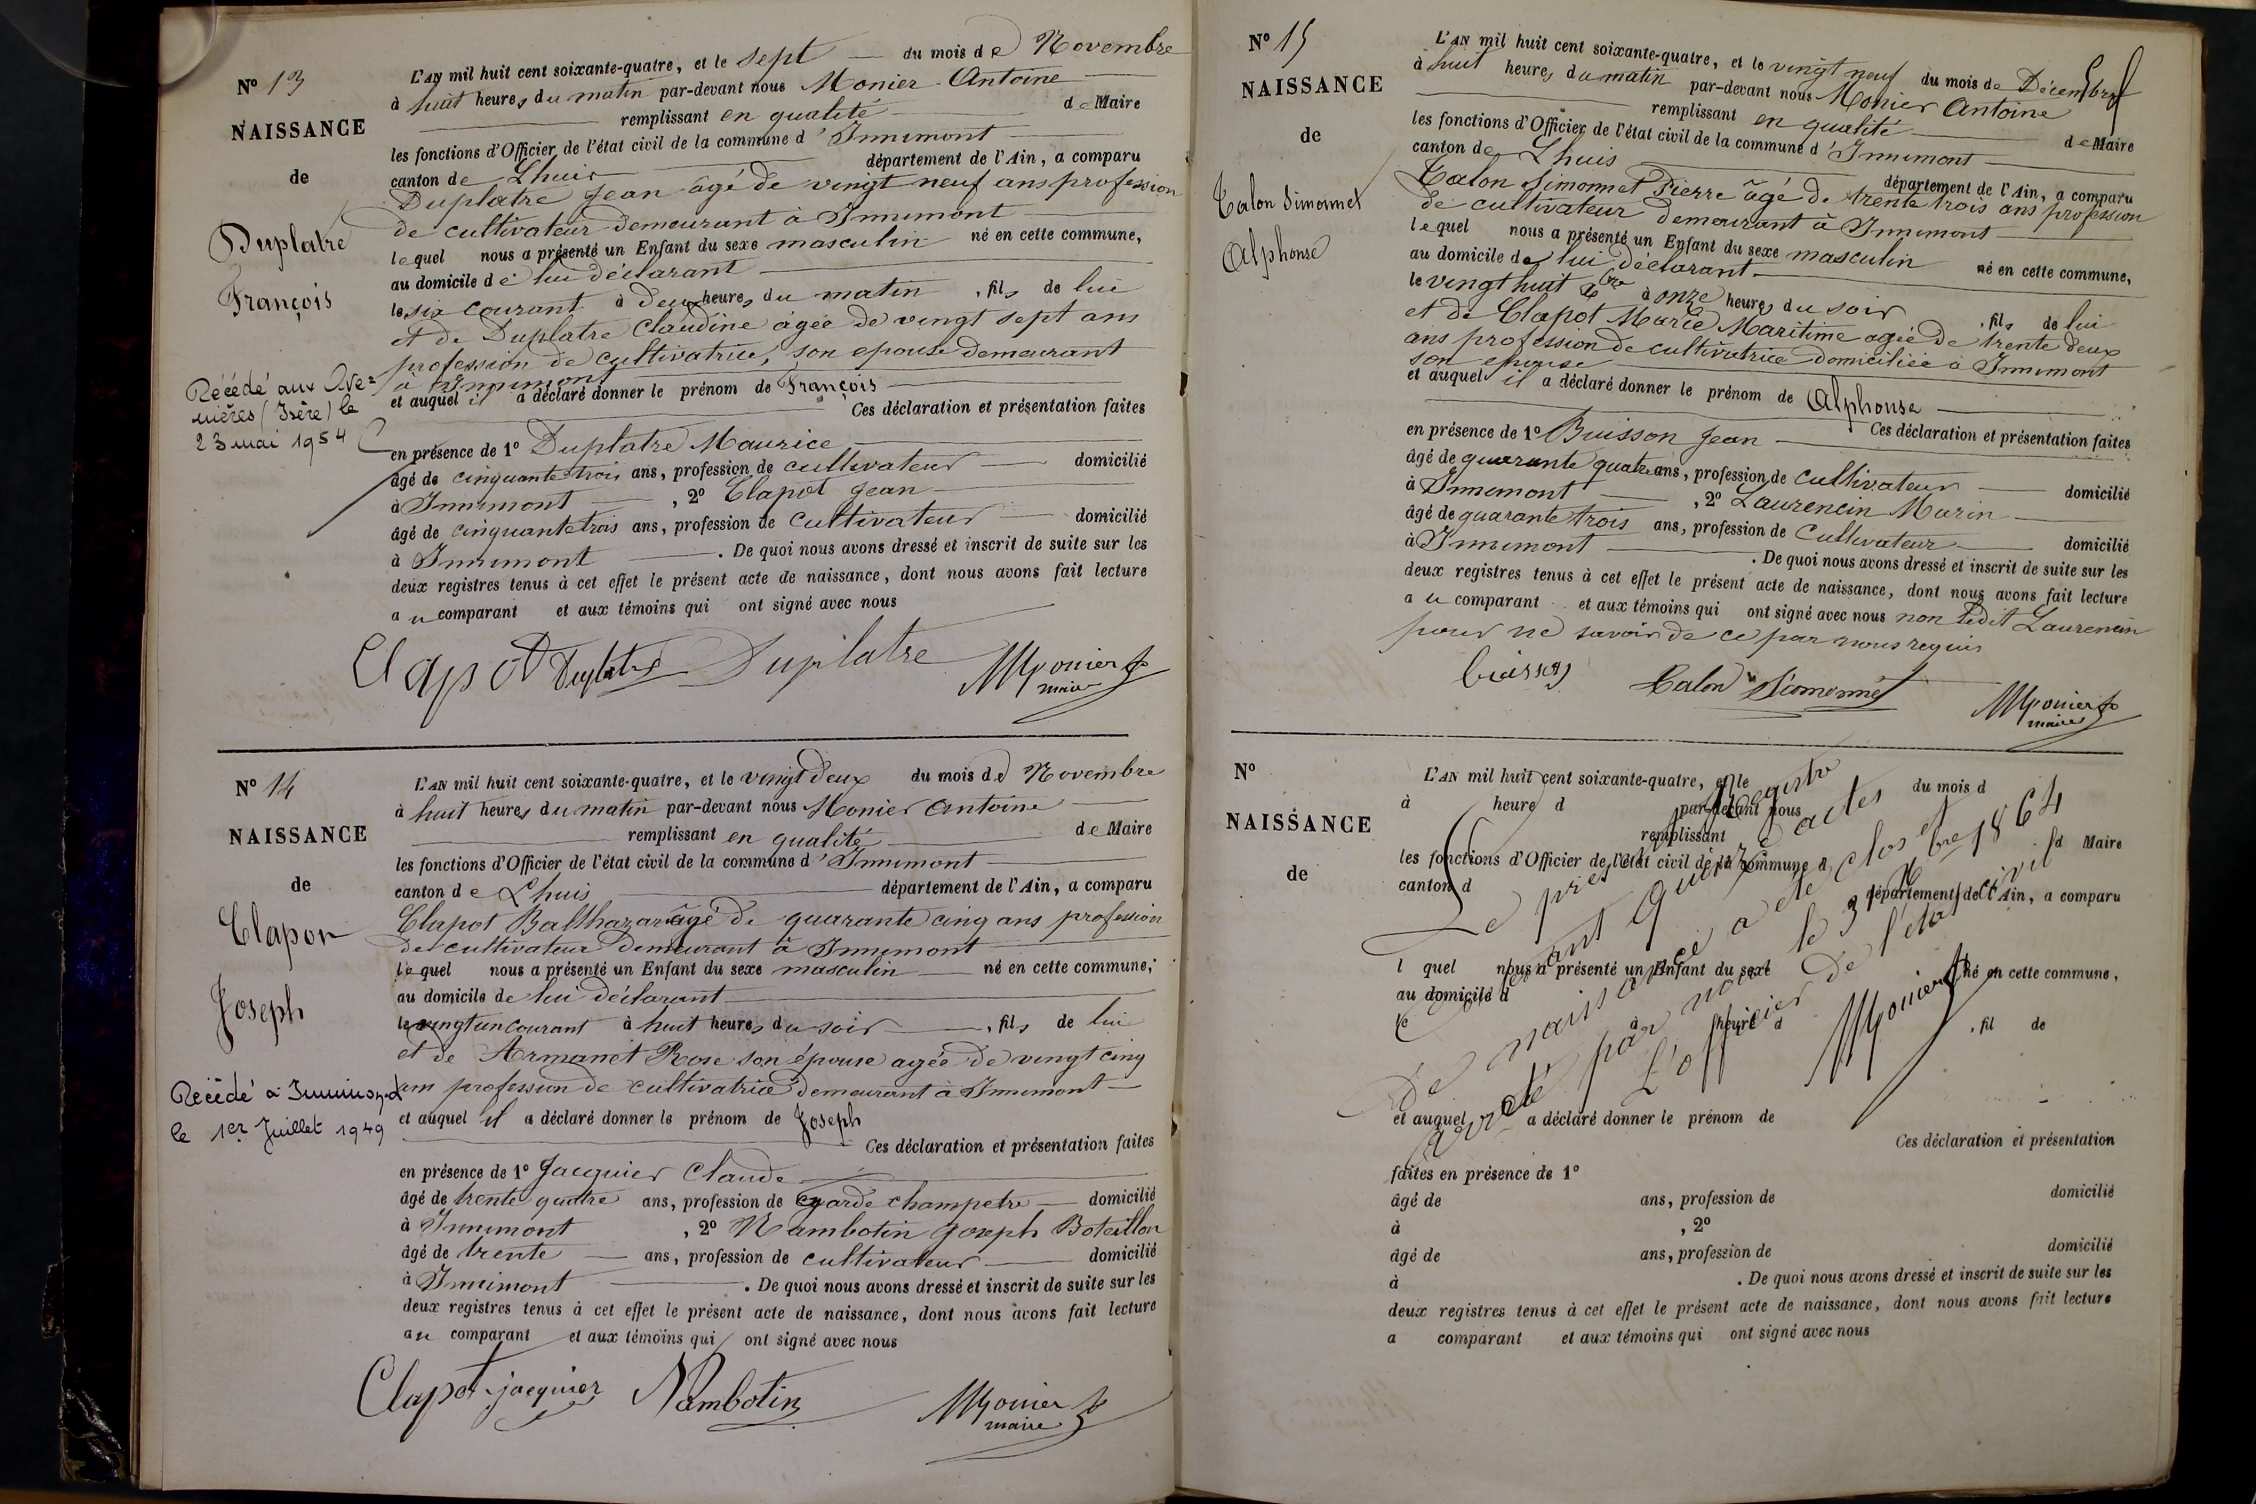 N° 13
NAISSANCE
de
Duplatre
François
Décédé aux Ave=
nières (Isère) le
23 mai 1954
L'AN mil huit cent soixante-quatre, et le sept du mois de Novembre
à huit heures du matin par-devant nous Monier Antoine
remplissant en qualité de Maire
les fonctions d'Officier de l'état civil de la commune d'Innimont
canton de Lhuis département de l'Ain, a comparu
Duplatre Jean âgé de vingt neuf ans profession
de cultivateur demeurant à Innimont
lequel nous a présenté un Enfant du sexe masculin né en cette commune,
au domicile de lui déclarant
le six courant à deux heures du matin, fils de lui
et de Duplatre Claudine âgée de vingt sept ans
profession de cultivatrice, son epouse demeurant
à Innimont
et auquel il a déclaré donner le prénom de François
Ces déclaration et présentation faites
en présence de 1° Duplatre Maurice
âgé de cinquante trois ans, profession de cultivateur domicilié
à Innimont, 2° Clapot Jean
âgé de cinquante trois ans, profession de cultivateur domicilié
à Innimont. De quoi nous avons dressé et inscrit de suite sur les
deux registres tenus à cet effet le présent acte de naissance, dont nous avons fait lecture
au comparant et aux témoins qui ont signé avec nous
Clapot Duplatre Duplatre Monier
maire
N° 14
NAISSANCE
de
Clapon
Joseph
Décédé à Innimont
le 1er Juillet 1949
L'AN mil huit cent soixante-quatre, et le vingt deux du mois de Novembre
à huit heures du matin par-devant nous Monier Antoine
remplissant en qualité de Maire
les fonctions d'Officier de l'état civil de la commune d'Innimont
canton de Lhuis département de l'Ain, a comparu
Clapot Balthazar âgé de quarante cinq ans profession
de cultivateur demeurant à Innimont
lequel nous a présenté un Enfant du sexe masculin né en cette commune,
au domicile de lui déclarant
le vingt un courant à huit heures du soir, fils de lui
et de Armanet Rose son épouse agée de vingt cinq
ans profession de cultivatrice demeurant à Innimont
et auquel il a déclaré donner le prénom de Joseph
Ces déclaration et présentation faites
en présence de 1° Jacquier Claude
âgé de trente quatre ans, profession de garde champetre domicilié
à Innimont, 2° Nambotin Joseph Boteillon
âgé de trente ans, profession de cultivateur domicilié
à Innimont. De quoi nous avons dressé et inscrit de suite sur les
deux registres tenus à cet effet le présent acte de naissance, dont nous avons fait lecture
au comparant et aux témoins qui ont signé avec nous
Clapot jacquier Nambotin Monier
maire
N° 15
NAISSANCE
de
Calon Simonnet
Alphonse
L'AN mil huit cent soixante-quatre, et le vingt neuf du mois de Décembre
à huit heures du matin par-devant nous Monier Antoine
remplissant en qualité de Maire
les fonctions d'Officier de l'état civil de la commune d'Innimont
canton de Lhuis département de l'Ain, a comparu
Calon Simonnet Pierre âgé de trente trois ans profession
de cultivateur demeurant à Innimont
lequel nous a présenté un Enfant du sexe masculin né en cette commune,
au domicile de lui déclarant
le vingt huit Xbre à onze heures du soir, fils de lui
et de Clapot Marie Maritime agée de trente deux
ans profession de cultivatrice domiciliée à Innimont
son epouse
et auquel il a déclaré donner le prénom de Alphonse
Ces déclaration et présentation faites
en présence de 1° Buisson Jean
âgé de quarante quatre ans, profession de cultivateur domicilié
à Innimont, 2° Laurencin Marin
âgé de quarante trois ans, profession de cultivateur domicilié
à Innimont. De quoi nous avons dressé et inscrit de suite sur les
deux registres tenus à cet effet le présent acte de naissance, dont nous avons fait lecture
au comparant et aux témoins qui ont signé avec nous non ledit Laurencin
pour ne savoir de ce par nous requis
Calon Simonnet Monier
maire
N°
NAISSANCE
de
L'AN mil huit cent soixante-quatre, et le du mois d
à heure d par-devant nous
remplissant d Maire
les fonctions d'Officier de l'état civil de la commune d
canton d département de l'Ain, a comparu
l quel nous a présenté un Enfant du sexe né en cette commune,
au domicile d
le à heure d, fil de
et auquel a déclaré donner le prénom de
Ces déclaration et présentation
faites en présence de 1°
âgé de ans, profession de domicilié
à, 2°
âgé de ans, profession de domicilié
à. De quoi nous avons dressé et inscrit de suite sur les
deux registres tenus à cet effet le présent acte de naissance, dont nous avons fait lecture
a comparant et aux témoins qui ont signé avec nous
Le présent registre
contenant quinze actes
de naissance a été clos et
arrêté par nous le 31 Xbre 1864
L'officier de l'état civil
Monier